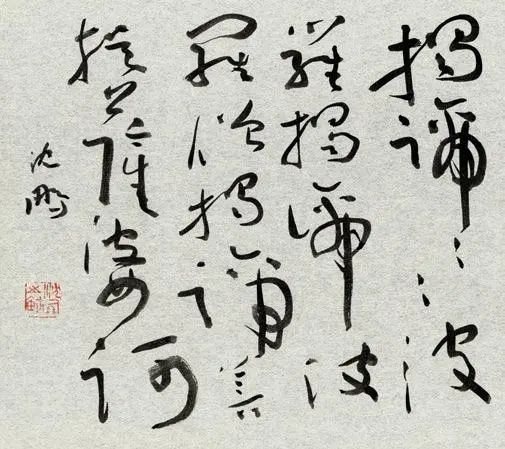 揭諦々々波
羅揭諦波
羅僧揭諦菩
提薩婆訶
沈鵬